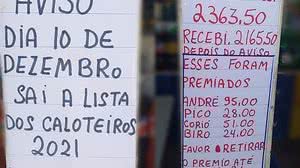 AVISO
DIA 10 DE
DEZEMBRO
SAI A LISTA
DOS CALOTEIROS
2021
2363,50
RECEBI. 2165,50
DEPOIS DO AVISO
ESSES FORAM
PREMIADOS
ANDRÉ 95,00
PICO 28.00
CORIO 51.00
BIRO 24.00
FAVOR RETIRAR
O PREMIO ATÉ